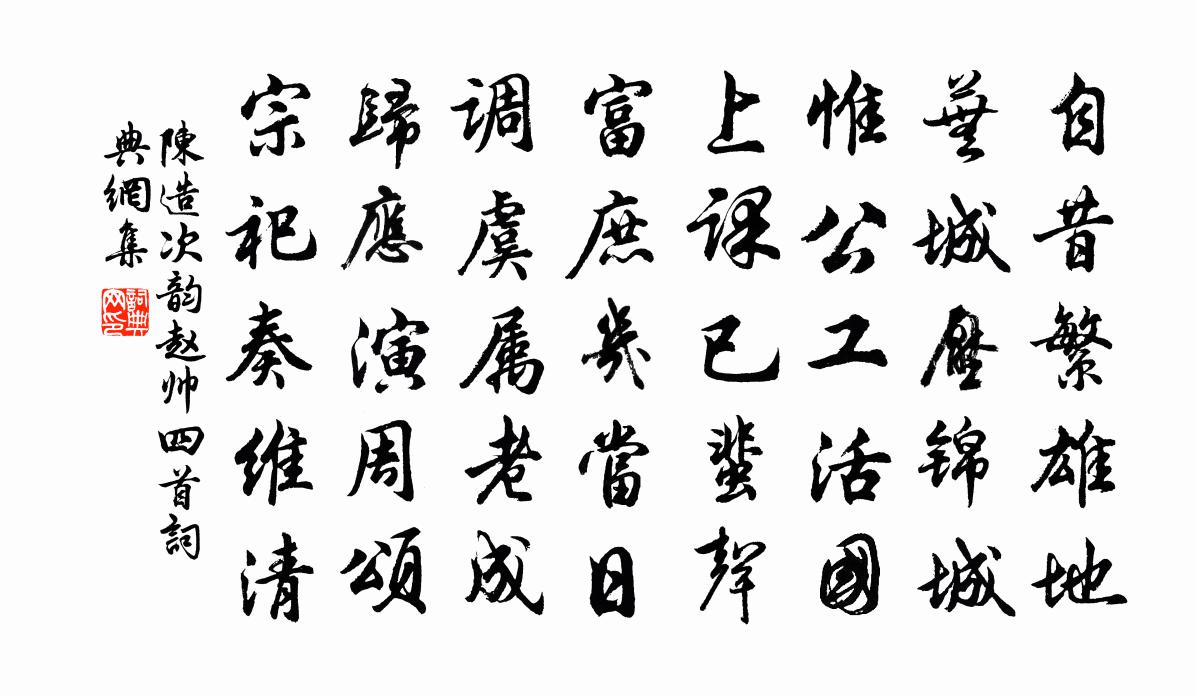 自昔繁雄地
蕪城壓锦城
惟公工活國
上課已蜚聲
富庶幾當日
調虞属老成
歸應演周頌
宗祀奏維清
陳造次韵赵帅四首詞
典網集
詞典
网印